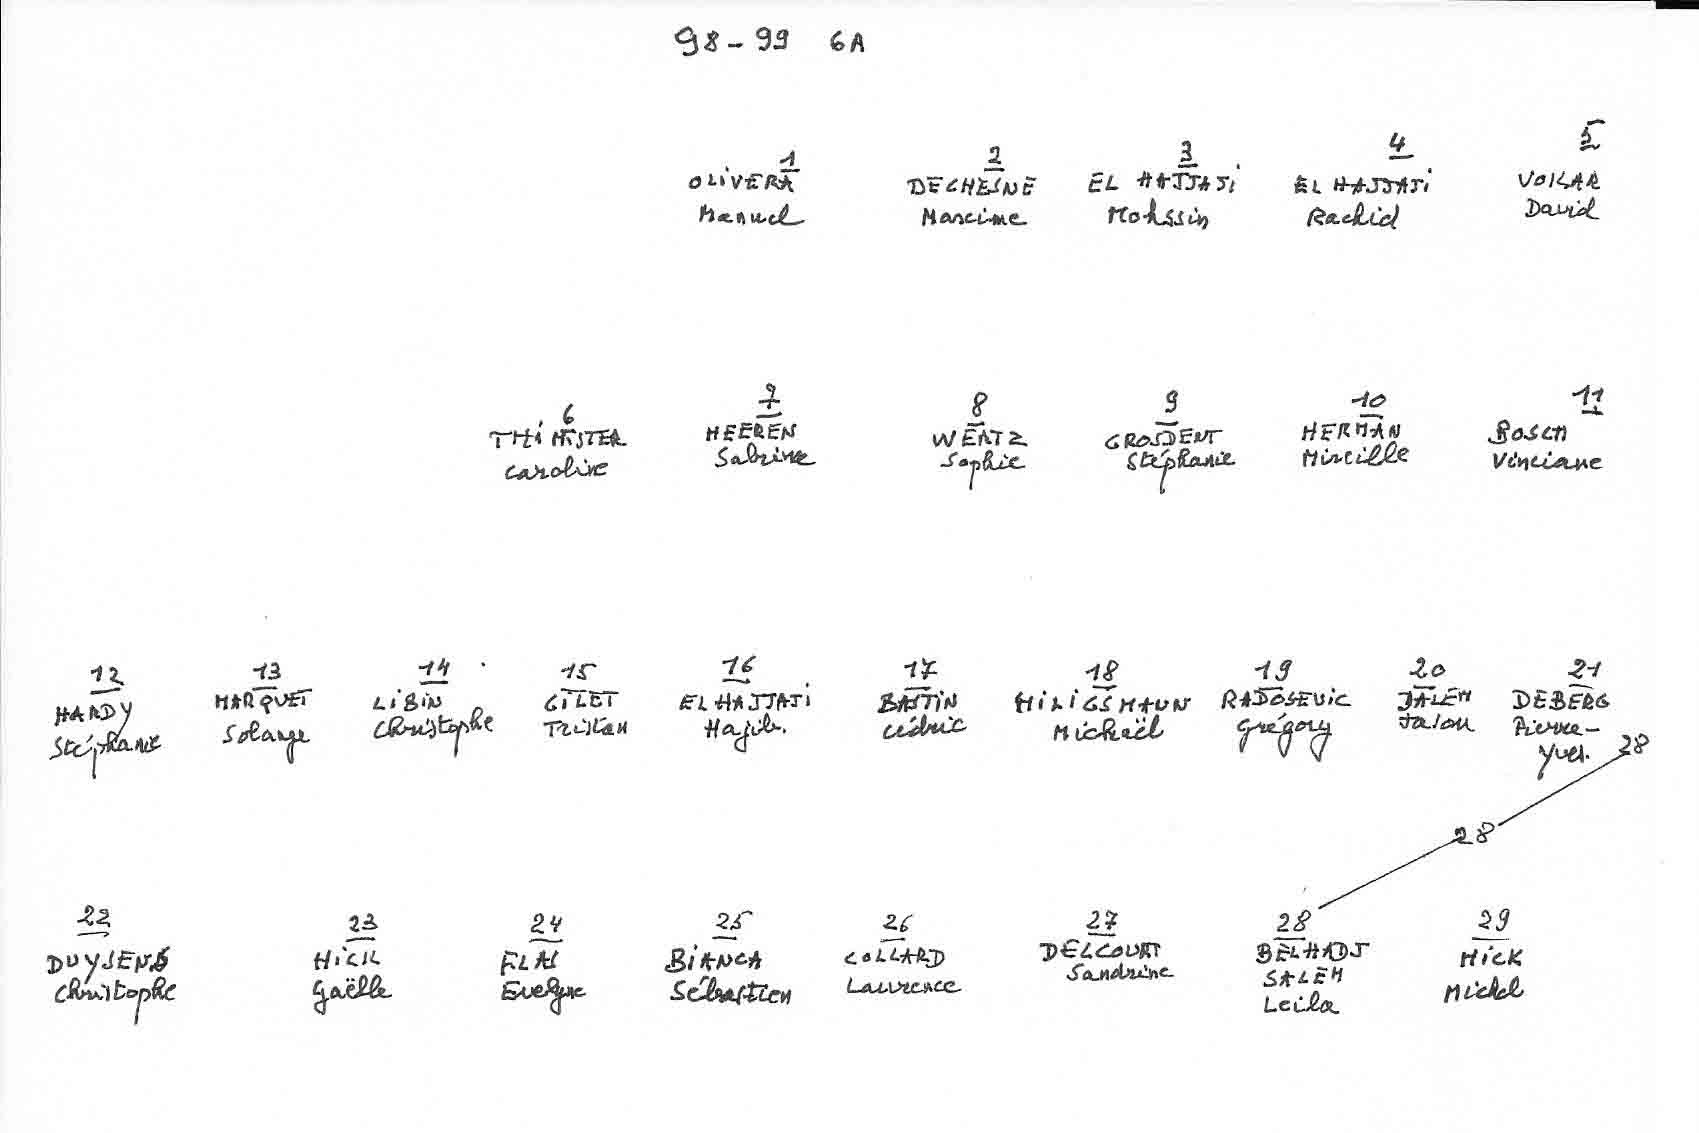 98-99 6A
1 2 3 4 5
OLIVERA DECHESNE EL HAJJAJi EL HAJJAJi VOKAR
Manuel Maxime Mohssin Rachid David
6 7 8 9 10 11
THiMISTER HEEREN WERTZ GROSDENT HERMAN BOSCH
Caroline Sabrina Sophie Stéphanie Mireille Vinciane
12 13 14 15 16 17 18 19 20 21
HARDY MARQUET LiBiN GiLET EL HAJJAJi BASTIN HiLiGSMANN RADOSEVIC JALEM DEBERG
Stéphanie Solange Christophe Tristan Hajib. Cédric Michaël Grégory Pierre-
Yves. 28
28
22 23 24 25 26 27 28 29
DUYSENS HiCK ELAS BiANCA COLLARD DELCOURT BELHADJ HiCK
Christophe Gaëlle Evelyne Sébastien Laurence Sandrine SALEM Michel
Leila